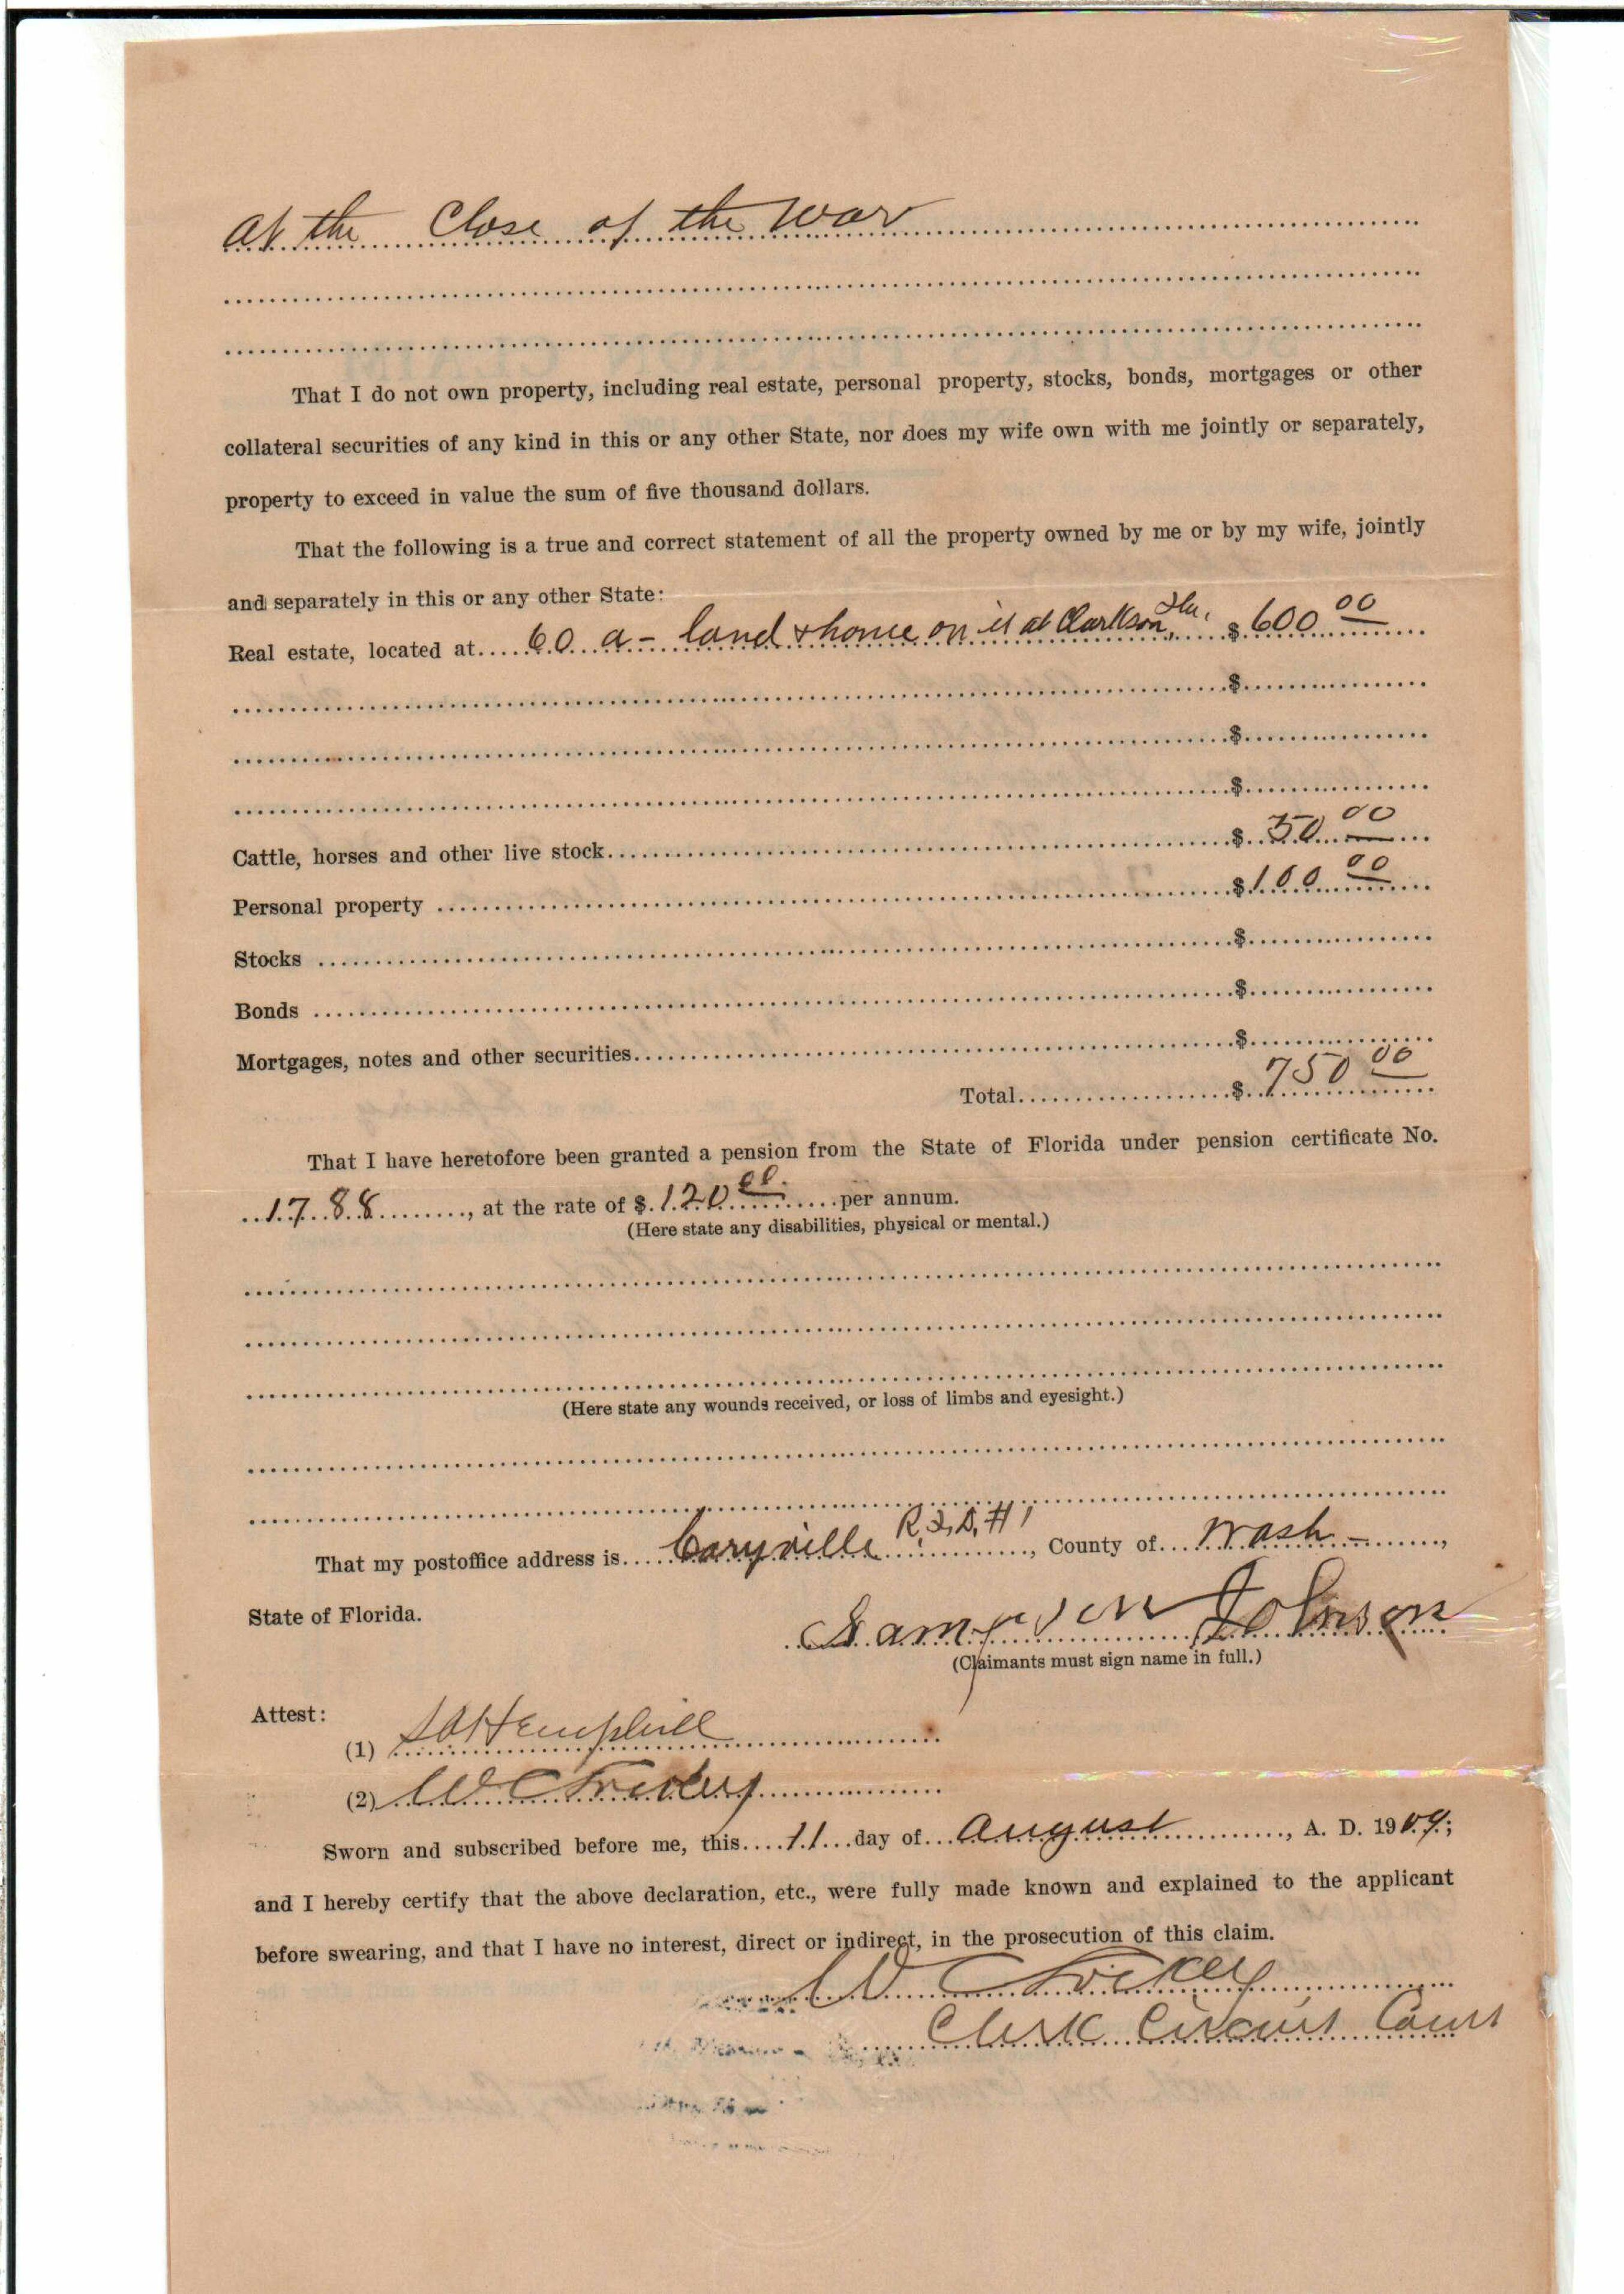 at the Close of the War
That I do not own property, including real estate, personal property, stocks, bonds, mortgages or other
collateral securities of any kind in this or any other State, nor does my wife own with me jointly or separately,
property to exceed in value the sum of five thousand dollars.
That the following is a true and correct statement of all the property owned by me or by my wife, jointly
and separately in this or any other State:
Real estate, located at 60 a - land & home on it at Clarkson, Fla. $ 600 00
$
$
$
Cattle, horses and other live stock $ 50 00
Personal property $ 100 00
Stocks $
Bonds $
Mortgages, notes and other securities $
Total $ 750 00
That I have heretofore been granted a pension from the State of Florida under pension certificate No.
1788, at the rate of $ 120 00 per annum.
(Here state any disabilities, physical or mental.)
(Here state any wounds received, or loss of limbs and eyesight.)
That my postoffice address is Caryville R.F.D. #1, County of Wash -,
State of Florida. Johnson
(Claimants must sign name in full.)
Attest:
(1) Hemphill
(2) W C
Sworn and subscribed before me, this 11 day of August, A. D. 1909;
and I hereby certify that the above declaration, etc., were fully made known and explained to the applicant
before swearing, and that I have no interest, direct or indirect, in the prosecution of this claim.
W C
Clerk Circuit Court